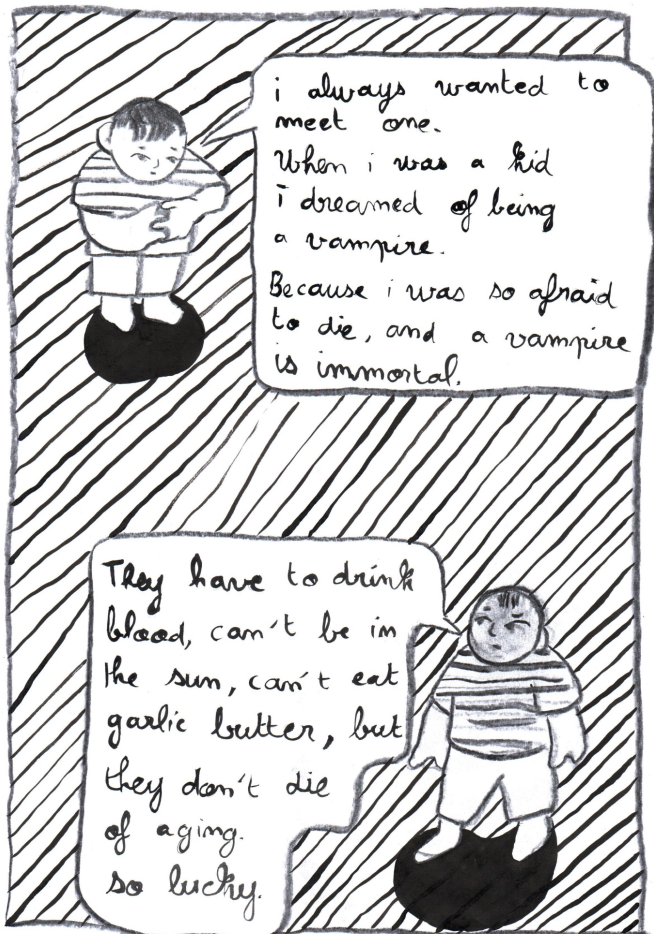 i always wanted to
meet one.
When i was a kid
i dreamed of being
a vampire.
Because i was so afraid
to die, and a vampire
is immortal.
They have to drink
blood, can't be in
the sun, can't eat
garlic butter, but
they don't die
of aging.
so lucky.